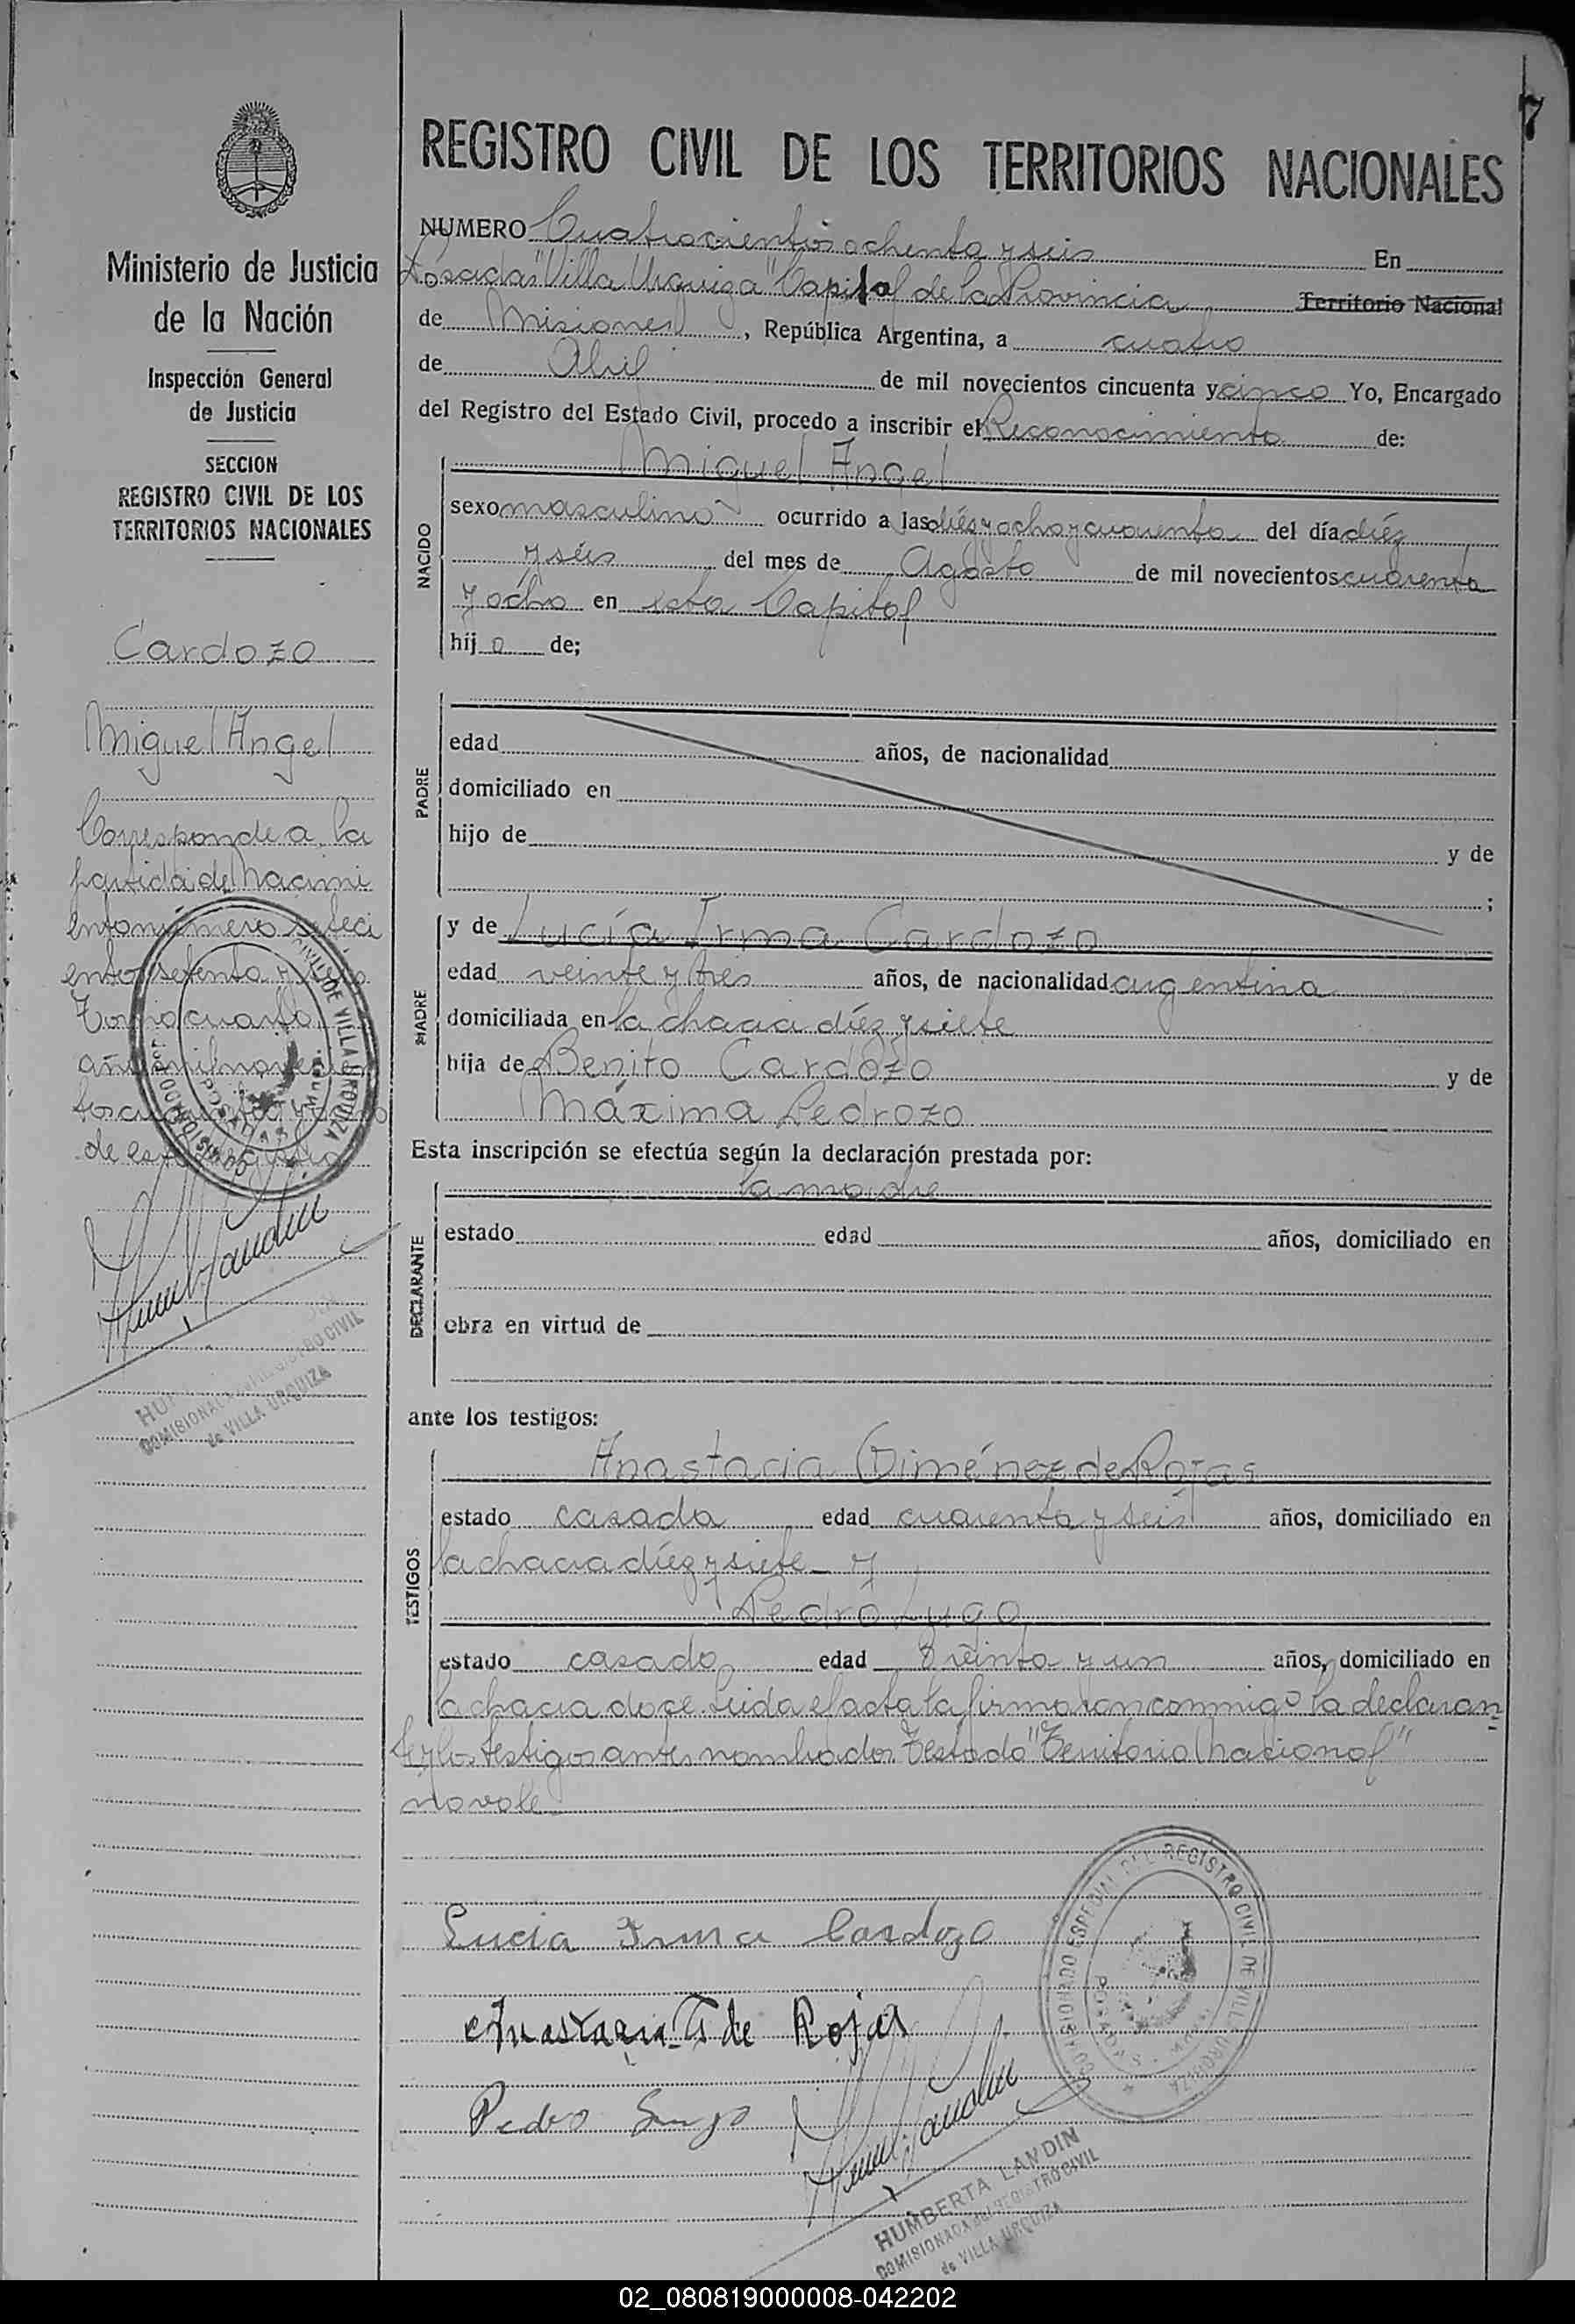 7
REGISTRO CIVIL DE LOS TERRITORIOS NACIONALES
Ministerio de Justicia
de la Nación
Inspección General
de Justicia
SECCION
REGISTRO CIVIL DE LOS
TERRITORIOS NACIONALES
Cardozo
Miguel Angel
Corresponde a la
partida de Nacimi
ento número seteci
entos setenta y
Tomo cuarto
año mil nove
de este
NUMERO Cuatrocientos ochenta y seis En
Posadas "Villa Urquiza" Capital de la Provincia Territorio Nacional
de Misiones, República Argentina, a cuatro
de Abril de mil novecientos cincuenta y cinco Yo, Encargado
del Registro del Estado Civil, procedo a inscribir el Reconocimiento de:
NACIDO
Miguel Angel
sexo masculino ocurrido a las diéz y ocho y cuarenta del día diéz
y séis del mes de Agosto de mil novecientos cuarenta
y ocho en esta Capital
hij o de;
PADRE
edad años, de nacionalidad
domiciliado en
hijo de y de
;
MADRE
y de Lucía Irma Cardozo
edad veinte y trés años, de nacionalidad argentina
domiciliada en la chacra diéz y siete
hija de Benito Cardozo y de
Máxima Pedrozo
Esta inscripción se efectúa según la declaración prestada por:
DECLARANTE
la madre
estado edad años, domiciliado en
obra en virtud de
ante los testigos:
TESTIGOS
Anastacia Giménez de Rojas
estado casada edad cuarenta y seis años, domiciliado en
la chacra diéz y siete y
Pedro Lugo
estado casado edad treinta y un años, domiciliado en
la chacra doce. Leida el acta la firmaron conmigo la declaran
te y los testigos antes nombrados. Testado "Territorio Nacional"
no vale
Lucia Irma Cardozo
Anastacia G de Rojas
Pedro Lugo
COMISIONADO ESPECIAL DEL REGISTRO CIVIL DE VILLA URQUIZA
POSADAS
HUMBERTA LANDIN
COMISIONADA del REGISTRO CIVIL
de VILLA URQUIZA
02_080819000008-042202